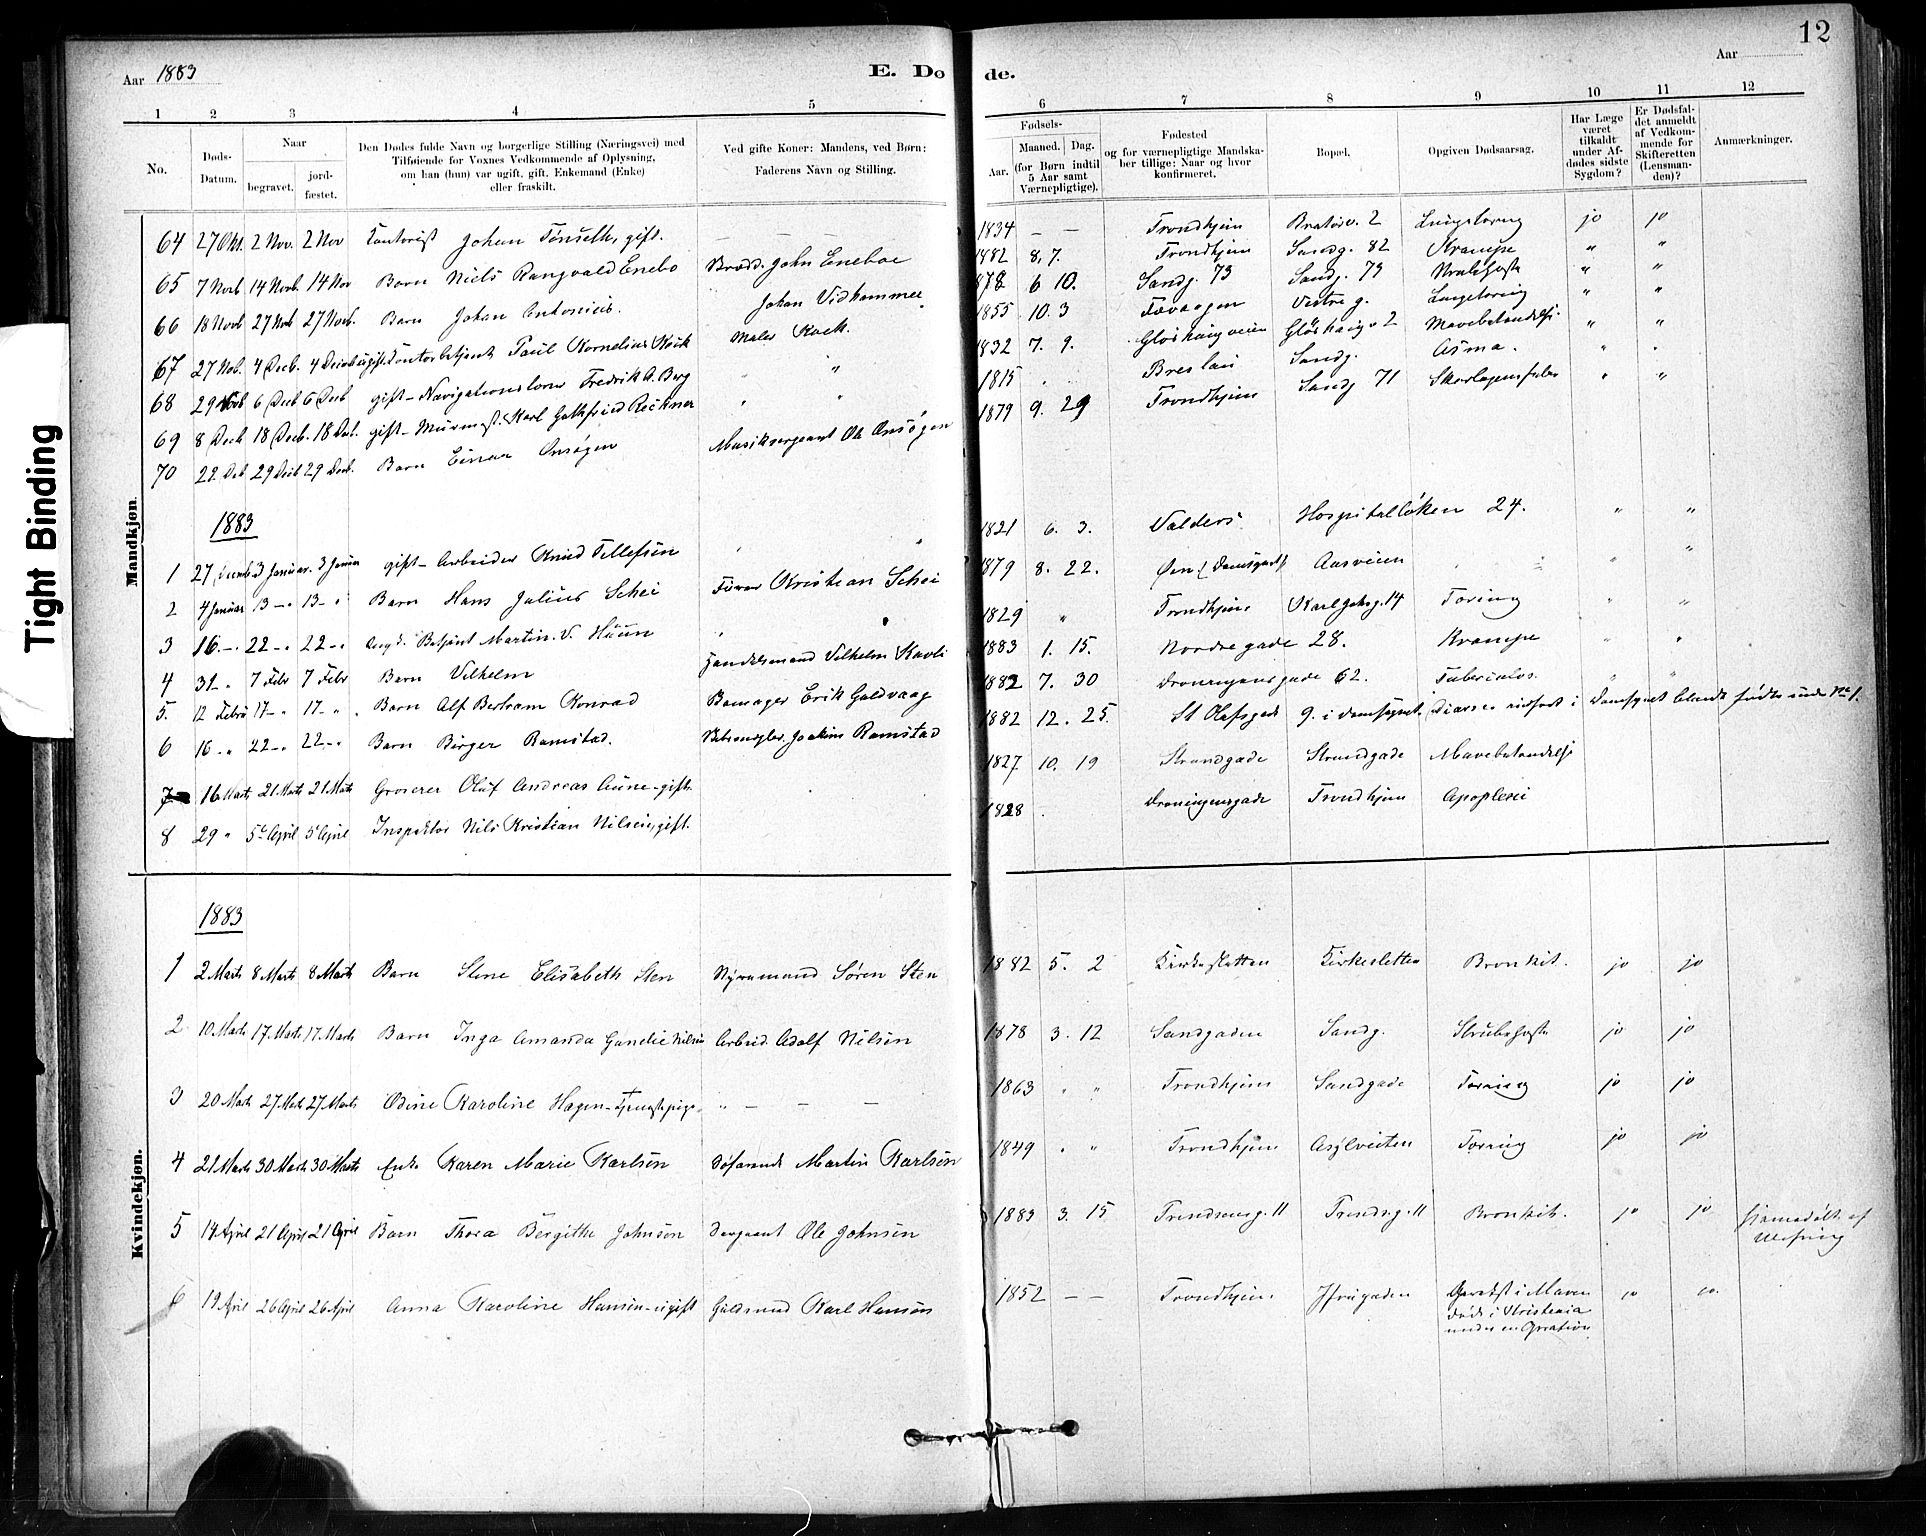 12
Aar 1883
E. Dø
de.
Aar
1 2 3 4 5 6 7 8 9 10 11 12
No.
Døds-
Datum.
Naar
begravet.
jord-
fæstet.
Den Dødes fulde Navn og borgerlige Stilling (Næringsvei) med
Tilføiende for Voxnes Vedkommende af Oplysning,
om han (hun) var ugift, gift, Enkemand (Enke)
eller fraskilt.
Ved gifte Koner: Mandens, ved Børn:
Faderens Navn og Stilling.
Fødsels-
Aar.
Maaned.
Dag.
(for Børn indtil
5 Aar samt
Værnepligtige).
Fødested
og for værnepligtige Mandska-
ber tillige: Naar og hvor
konfirmeret.
Bopæl.
Opgiven Dødsaarsag.
Har Læge
været
tilkaldt
under Af-
dødes sidste
Sygdom?
Er Dødsfal-
det anmeldt
af Vedkom-
mende for
Skifteretten
(Lensman-
den)?
Anmærkninger.
Tight Binding
Mandkjøn.
64 27 Okt. 2 Nov. 2 Nov Kontorist Johan Tønseth, gift. — — — 1834 — — Trondhjem Bratørv. 2 Lungetæring jo jo
65 7 Novb 14 Novb. 14 Nov Barn Niels Rangvald Enebo John Eneboe 1882 8. 7. Trondhjem Sandg. 82 Krampe " "
66 18 Novb 27 Novb 27 Novb. Barn Johan Antonius. Johan Vidhammer 1878 6 10. Sandg. 73 Sandg. 73 " "
67 27 Nob. 4 Decb. 4 Paul Kornelius Kock Maler Kock. 1855 10. 3 Vestre g. Lungetæring " "
68 29 6 Decb 6 Decb gift - Navigationslærer Fredrik A. Berg " " 1832 7. 9. Gløshaugveien Gløshaugv 2 " "
69 8 Decb 18 Decb. 18 Decb. gift - Karl Gotfried " " 1815 " " Breslau Sandg. Asma. " "
70 22 Deb 29 Decb 29 Decb. Barn Einar Onsøgen Musiksergeant Ole Onsøgen 1879 9. 29 Trondhjem Sandg 71 Skarlagensfeber " "
1883
1 27 3 Januar. 3 Januar gift - Arbeider Knud Tellefsen " " 1821 6. 3. Valders Hospitalløken 24. " "
2 4 Januar 13 — " 13 — " Barn Hans Julius Schei Kristian Schei 1879 8. 22. Øen Aasveien " "
3 16. — " 22 — " 22 — " Betjent Martin V. Huun " 1829 " Trondhjem Karl Johsg. 14 Tæring " "
4 31 — " 7 Febr 7 Febr Barn Vilhelm Handelsmand Vilhelm Kavli 1883 1. 15. Nordregade 28. Krampe " "
5. 12 Febru 17 — " 17 — " Barn Alf Bertram Konrad Erik Guldvaag 1882 7. 30 Dronningensgade 62. Tuberculos. " "
6 16 " 22 — " 22 — " Barn Birger Ramstad. Joakim Ramstad 1882 12. 25. St Olafsgade 9. i
7 16 Marts 21 Marts 21 Marts Groserer Oluf Andreas Aune - gift 1827 10. 19 Strandgade Strandgade
8 29 " 5te April 5te April Inspektør Nils Kristian Nilsen, gift. 1828 Dronningensgade Trondhjem Apoplexi
Kvindekjøn.
1883
1 2 Marts 8 Marts 8 Marts Barn Stine Elisabeth Sten Søren Sten 1882 5. 2 Kirkesletten Kirkesletten Bronkit. jo jo
2 10 Marts 17. Marts 17 Marts Barn Inga Amanda Nilsen Arbeid. Adolf Nilsen 1878 3. 12 Sandgaden Sandg. Strubehoste jo jo
3 20 Marts 27 Marts 27 Marts Odine Karoline Hagen - Tjenestepige " — — — 1863 " " Trondhjem Sandgade Tæring jo jo
4 21 Marts 30 Marts 30 Marts Enke Karen Marie Karlsen Søfarende Martin Karlsen 1849 " " Trondhjem Asylveiten Tæring jo jo
5 14 April 21 April 21 April Barn Thora Bergitte Johnsen Sergeant Ole Johnsen 1883 3. 15 11 11 Bronkit. jo jo Hjemmedøbt af
6 19 April 26 April 26 April Anna Karoline Hansen - ugift Guldsmed Karl Hansen 1852 — — Trondhjem Kræft i Maven jo jo
Døde i Kristiania
under en Operation